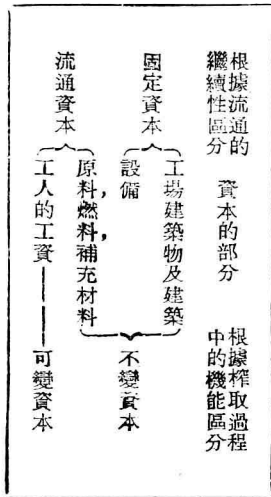 根據流通的
繼續性區分
資本的部分
根據榨取過程
中的機能區分
固定資本
工場建築物及建築
設備
不變資本
流通資本
原料,燃料,補充材料
工人的工資——可變資本